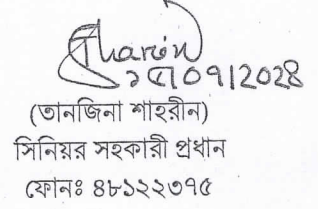 Sharin
১৫/০৭/২০২৪
(তানজিনা শাহ্‌রীন)
সিনিয়র সহকারী প্রধান
ফোনঃ ৪৮১২২৩৭৫